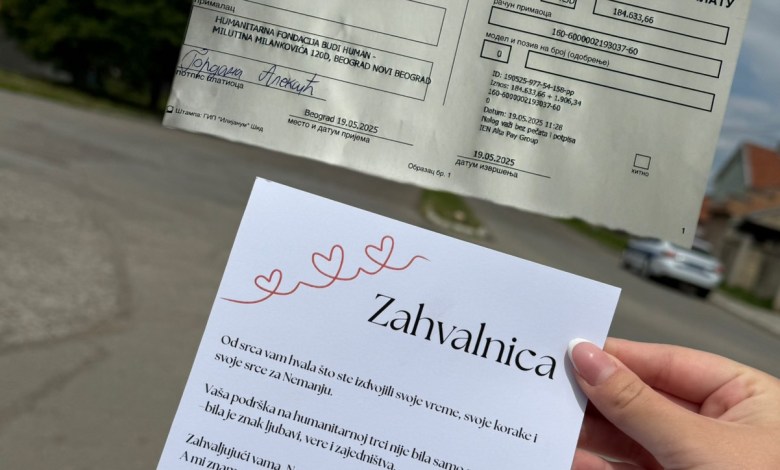 прималац
184.633,66
рачун примаоца
HUMANITARNA FONDACIJA BUDI HUMAN -
MILUTINA MILANKOVIĆA 120D, BEOGRAD NOVI BEOGRAD
160-6000002193037-60
модел и позив на број (одобрење)
0
Гордана Алексић
потпис платиоца
ID: 190525-977-54-158-pp
Iznos: 184.633,66 + 1.906,34
160-6000002193037-60
0
Datum: 19.05.2025 11:26
Nalog važi bez pečata i potpisa
IEN Alta Pay Group
Штампа: ГИП "Илијанум" Шид
Beograd 19.05.2025
место и датум пријема
Образац бр. 1
19.05.2025
датум извршења
хитно
1
Zahvalnica
Od srca vam hvala što ste izdvojili svoje vreme, svoje korake i
svoje srce za Nemanju.
Vaša podrška na humanitarnoj trci nije bila samo
-bila je znak ljubavi, vere i zajedništva.
Zahvaljujući vama,
A mi